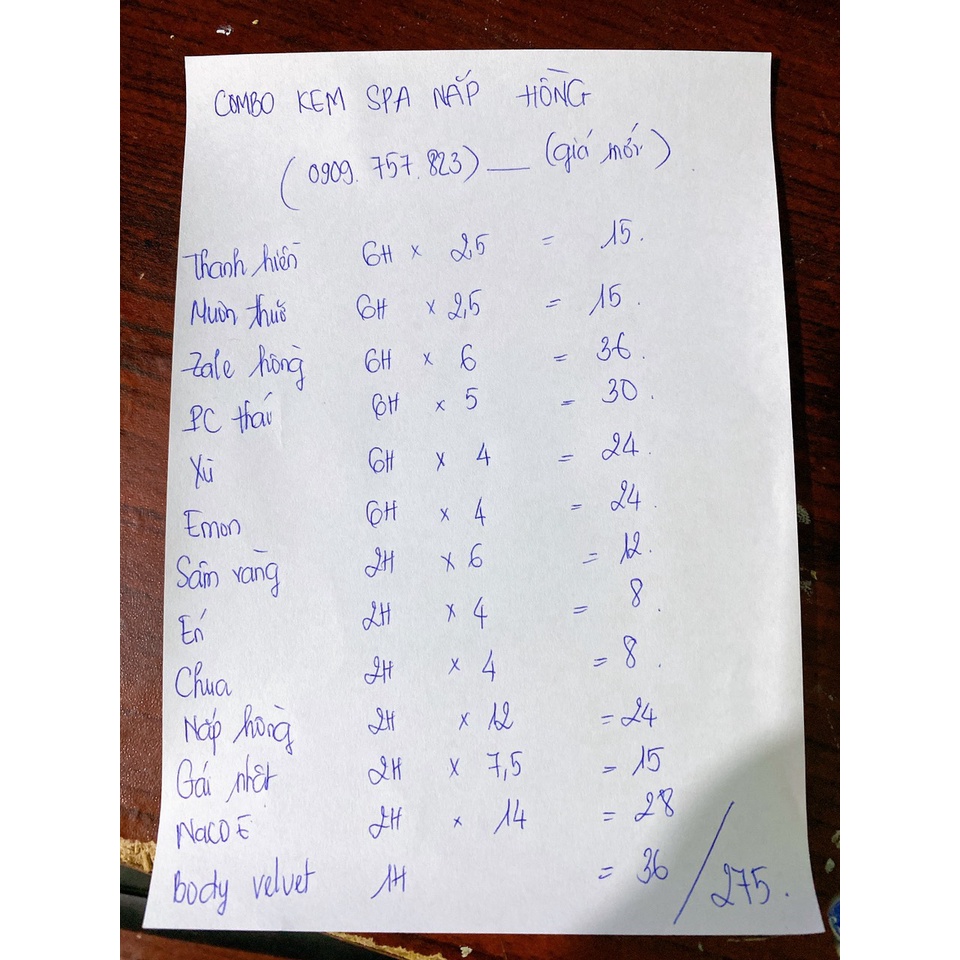 COMBO KEM SPA NẮP HỒNG
(0909.757.823) — (giá mới)
Thanh hiền 6H x 2,5 = 15.
Mườn thuố 6H x 2,5 = 15.
Zale hồng 6H x 6 = 36.
PC thái 6H x 5 = 30.
Xù 6H x 4 = 24.
Emon 6H x 4 = 24.
Sâm vàng 2H x 6 = 12.
Én 2H x 4 = 8.
Chua 2H x 4 = 8.
Nắp hồng 2H x 12 = 24
Gái nhật 2H x 7,5 = 15
NACOE 2H x 14 = 28
Body velvet 1H = 36 / 275.